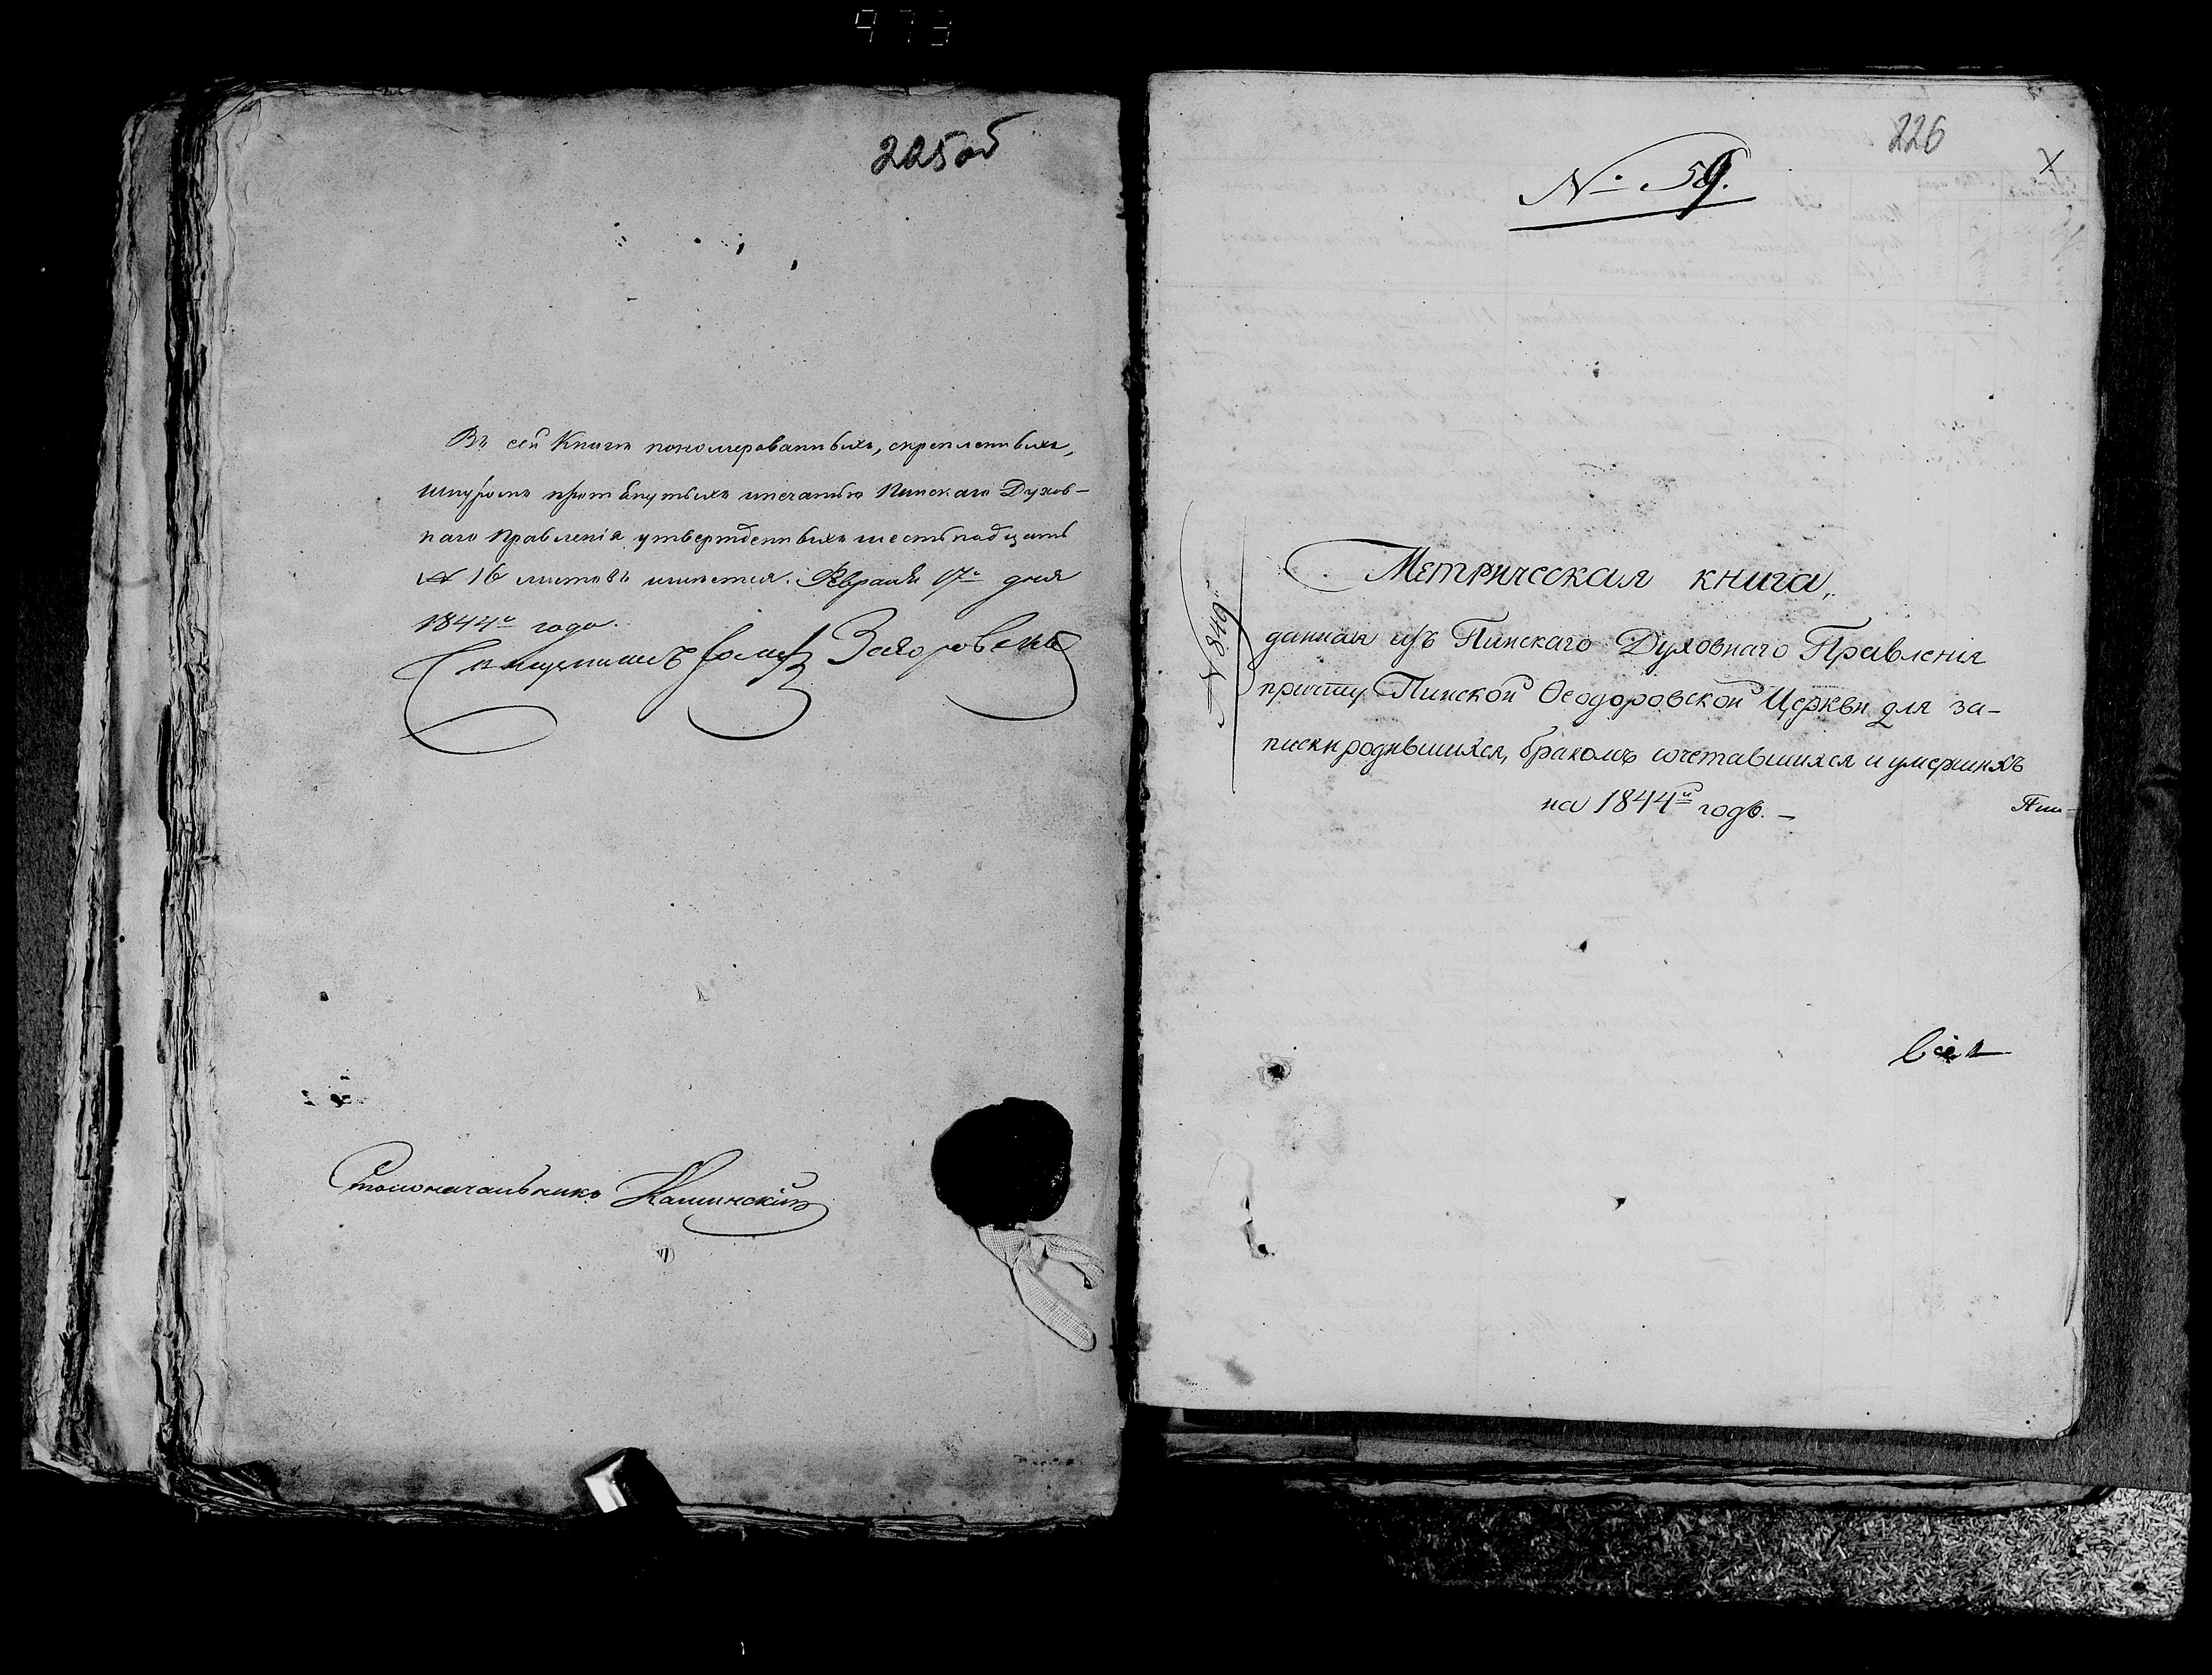 973
225об
Въ сей Книге пономерованныхъ, скрепленныхъ,
шнуромъ протянутыхъ и печатью Пинскаго Духов-
наго Правленія утвержденныхъ шестьнадцать
16 листовъ имѣется. Февраля 17 дня
1844го года.
Священникъ
Столоначальникъ Калинскій
226
№ 59.
№ 849
Метрическая книга,
данная изъ Пинскаго Духовнаго Правленія
причту Пинской Ѳеодоровской Церкви для за-
писки родившихся, бракомъ сочетавшихся и умершихъ
на 1844й годъ. –
Пин-